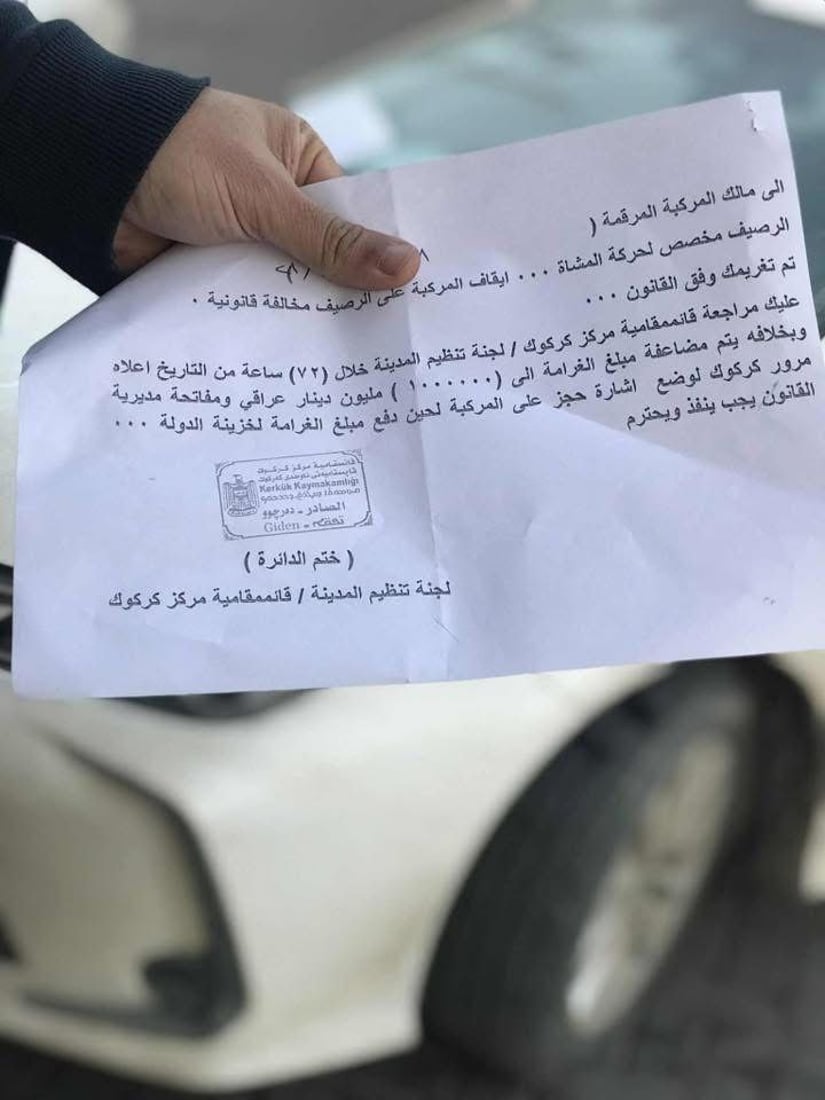 الى مالك المركبة المرقمة (
الرصيف مخصص لحركة المشاة ... ايقاف المركبة على الرصيف مخالفة قانونية .
تم تغريمك وفق القانون ...
عليك مراجعة قائممقامية مركز كركوك / لجنة تنظيم المدينة خلال (٧٢) ساعة من التاريخ اعلاه
وبخلافه يتم مضاعفة مبلغ الغرامة الى (١٠٠٠٠٠٠) مليون دينار عراقي ومفاتحة مديرية
مرور كركوك لوضع اشارة حجز على المركبة لحين دفع مبلغ الغرامة لخزينة الدولة ...
القانون يجب ينفذ ويحترم
قائممقامية مركز كركوك
Kerkük Kaymakamlığı
الصادر - دەرچوو
Giden -
( ختم الدائرة )
لجنة تنظيم المدينة / قائممقامية مركز كركوك